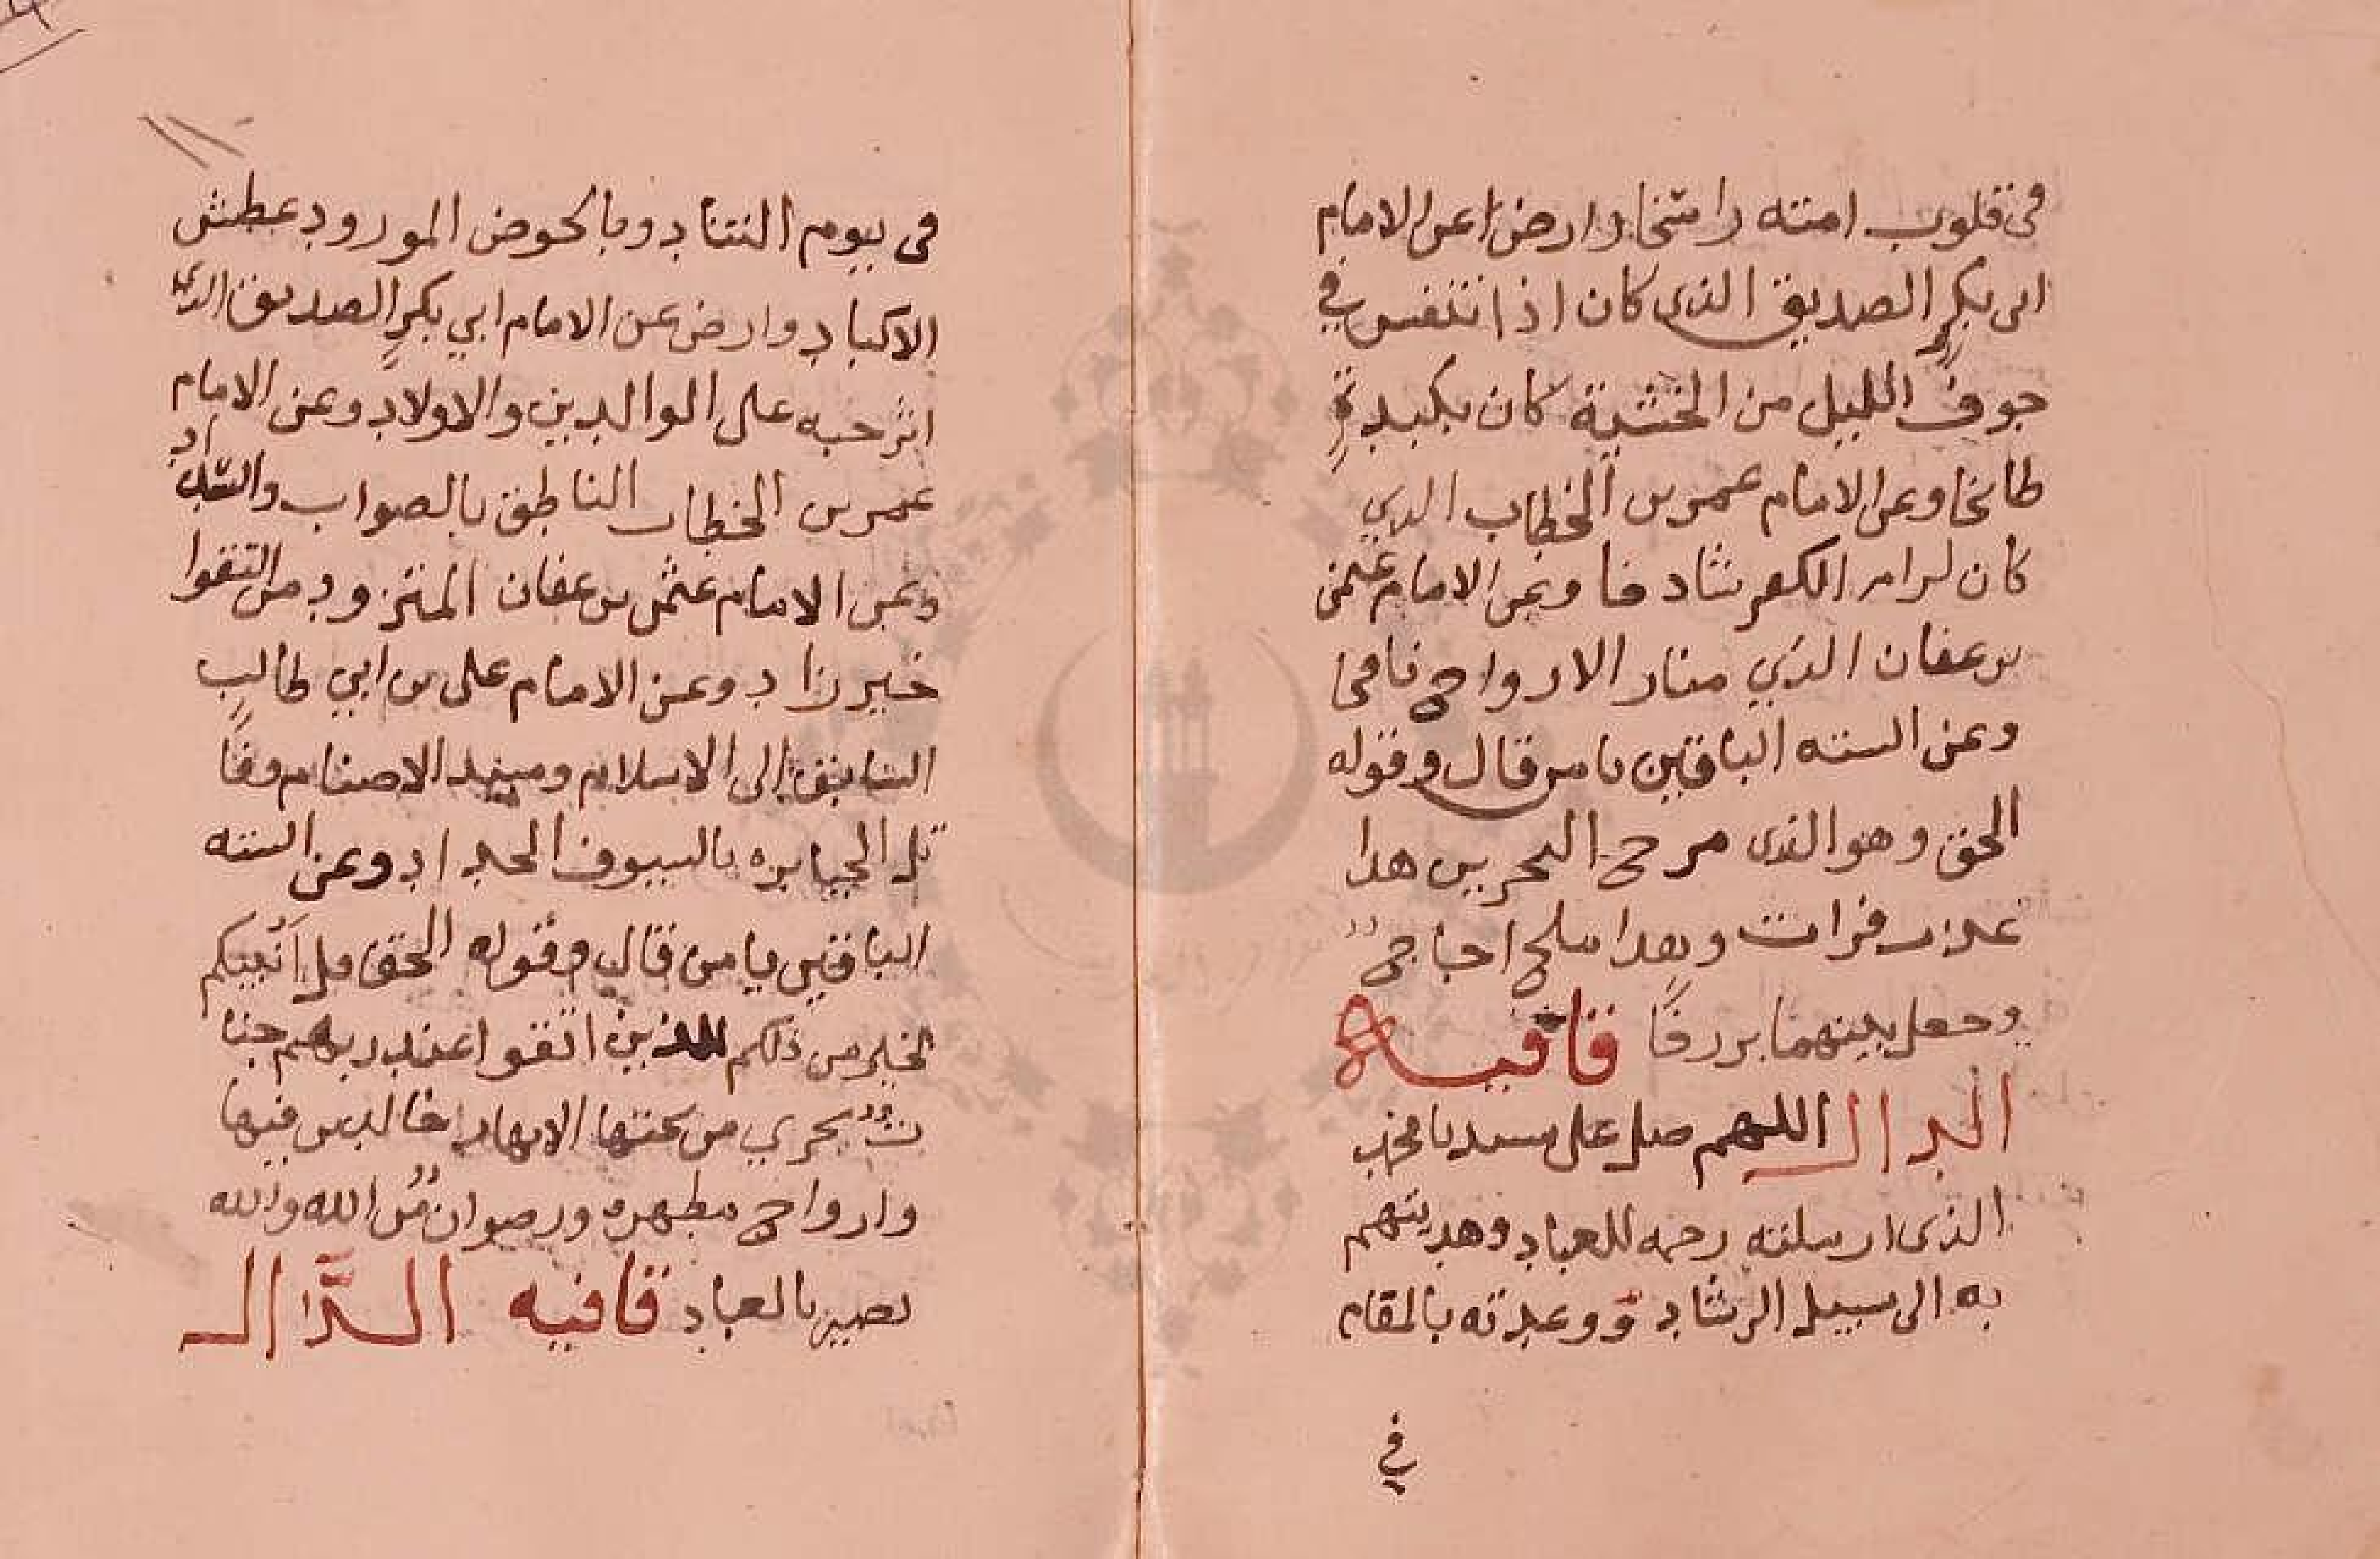 في قلوب امته راسخا وارض عن الامام
ابى بكر الصديق الذي كان اذا تنفس في
جوف الليل من الخشية كان بكبده
طابخا وعن الامام عمر بن الخطاب الذي
كان لرامر الكفر شادخا وعن الامام عثمن
بن عفان الذي منار الارواح نافخا
وعن السته الباقين يا من قال وقوله
الحق وهو الذي مرج البحرين هذا
عذب فرات وهذا ملح اجاج
وجعل بينهما برزخا قافيه
الدال اللهم صل على سيدنا محمد
الذى ارسلته رحمه للعباد وهديتهم
به الى سبيل الرشاد ووعدته بالمقام
في
فى يوم التناد وبالحوض المورود عطش
الاكباد وارض عن الامام ابي بكر الصديق الذي
اثر حبه على الوالدين والاولاد وعن الامام
عمر بن الخطاب الناطق بالصواب والسداد
وعن الامام عثمن بن عفان المتزود من التقوا
خير زاد وعن الامام على بن ابي طالب
السابق الى الاسلام ومبيد الاصنام وقا
تل الجبابره بالسيوف الحداد وعن السته
الباقين يا من قال وقوله الحق قل اانبيكم
بخير من ذلكم للذين اتقوا عند ربهم جنا
ت تجري من تحتها الانهار خالدين فيها
وازواج مطهره ورضوان من الله والله
بصير بالعباد قافيه الذال